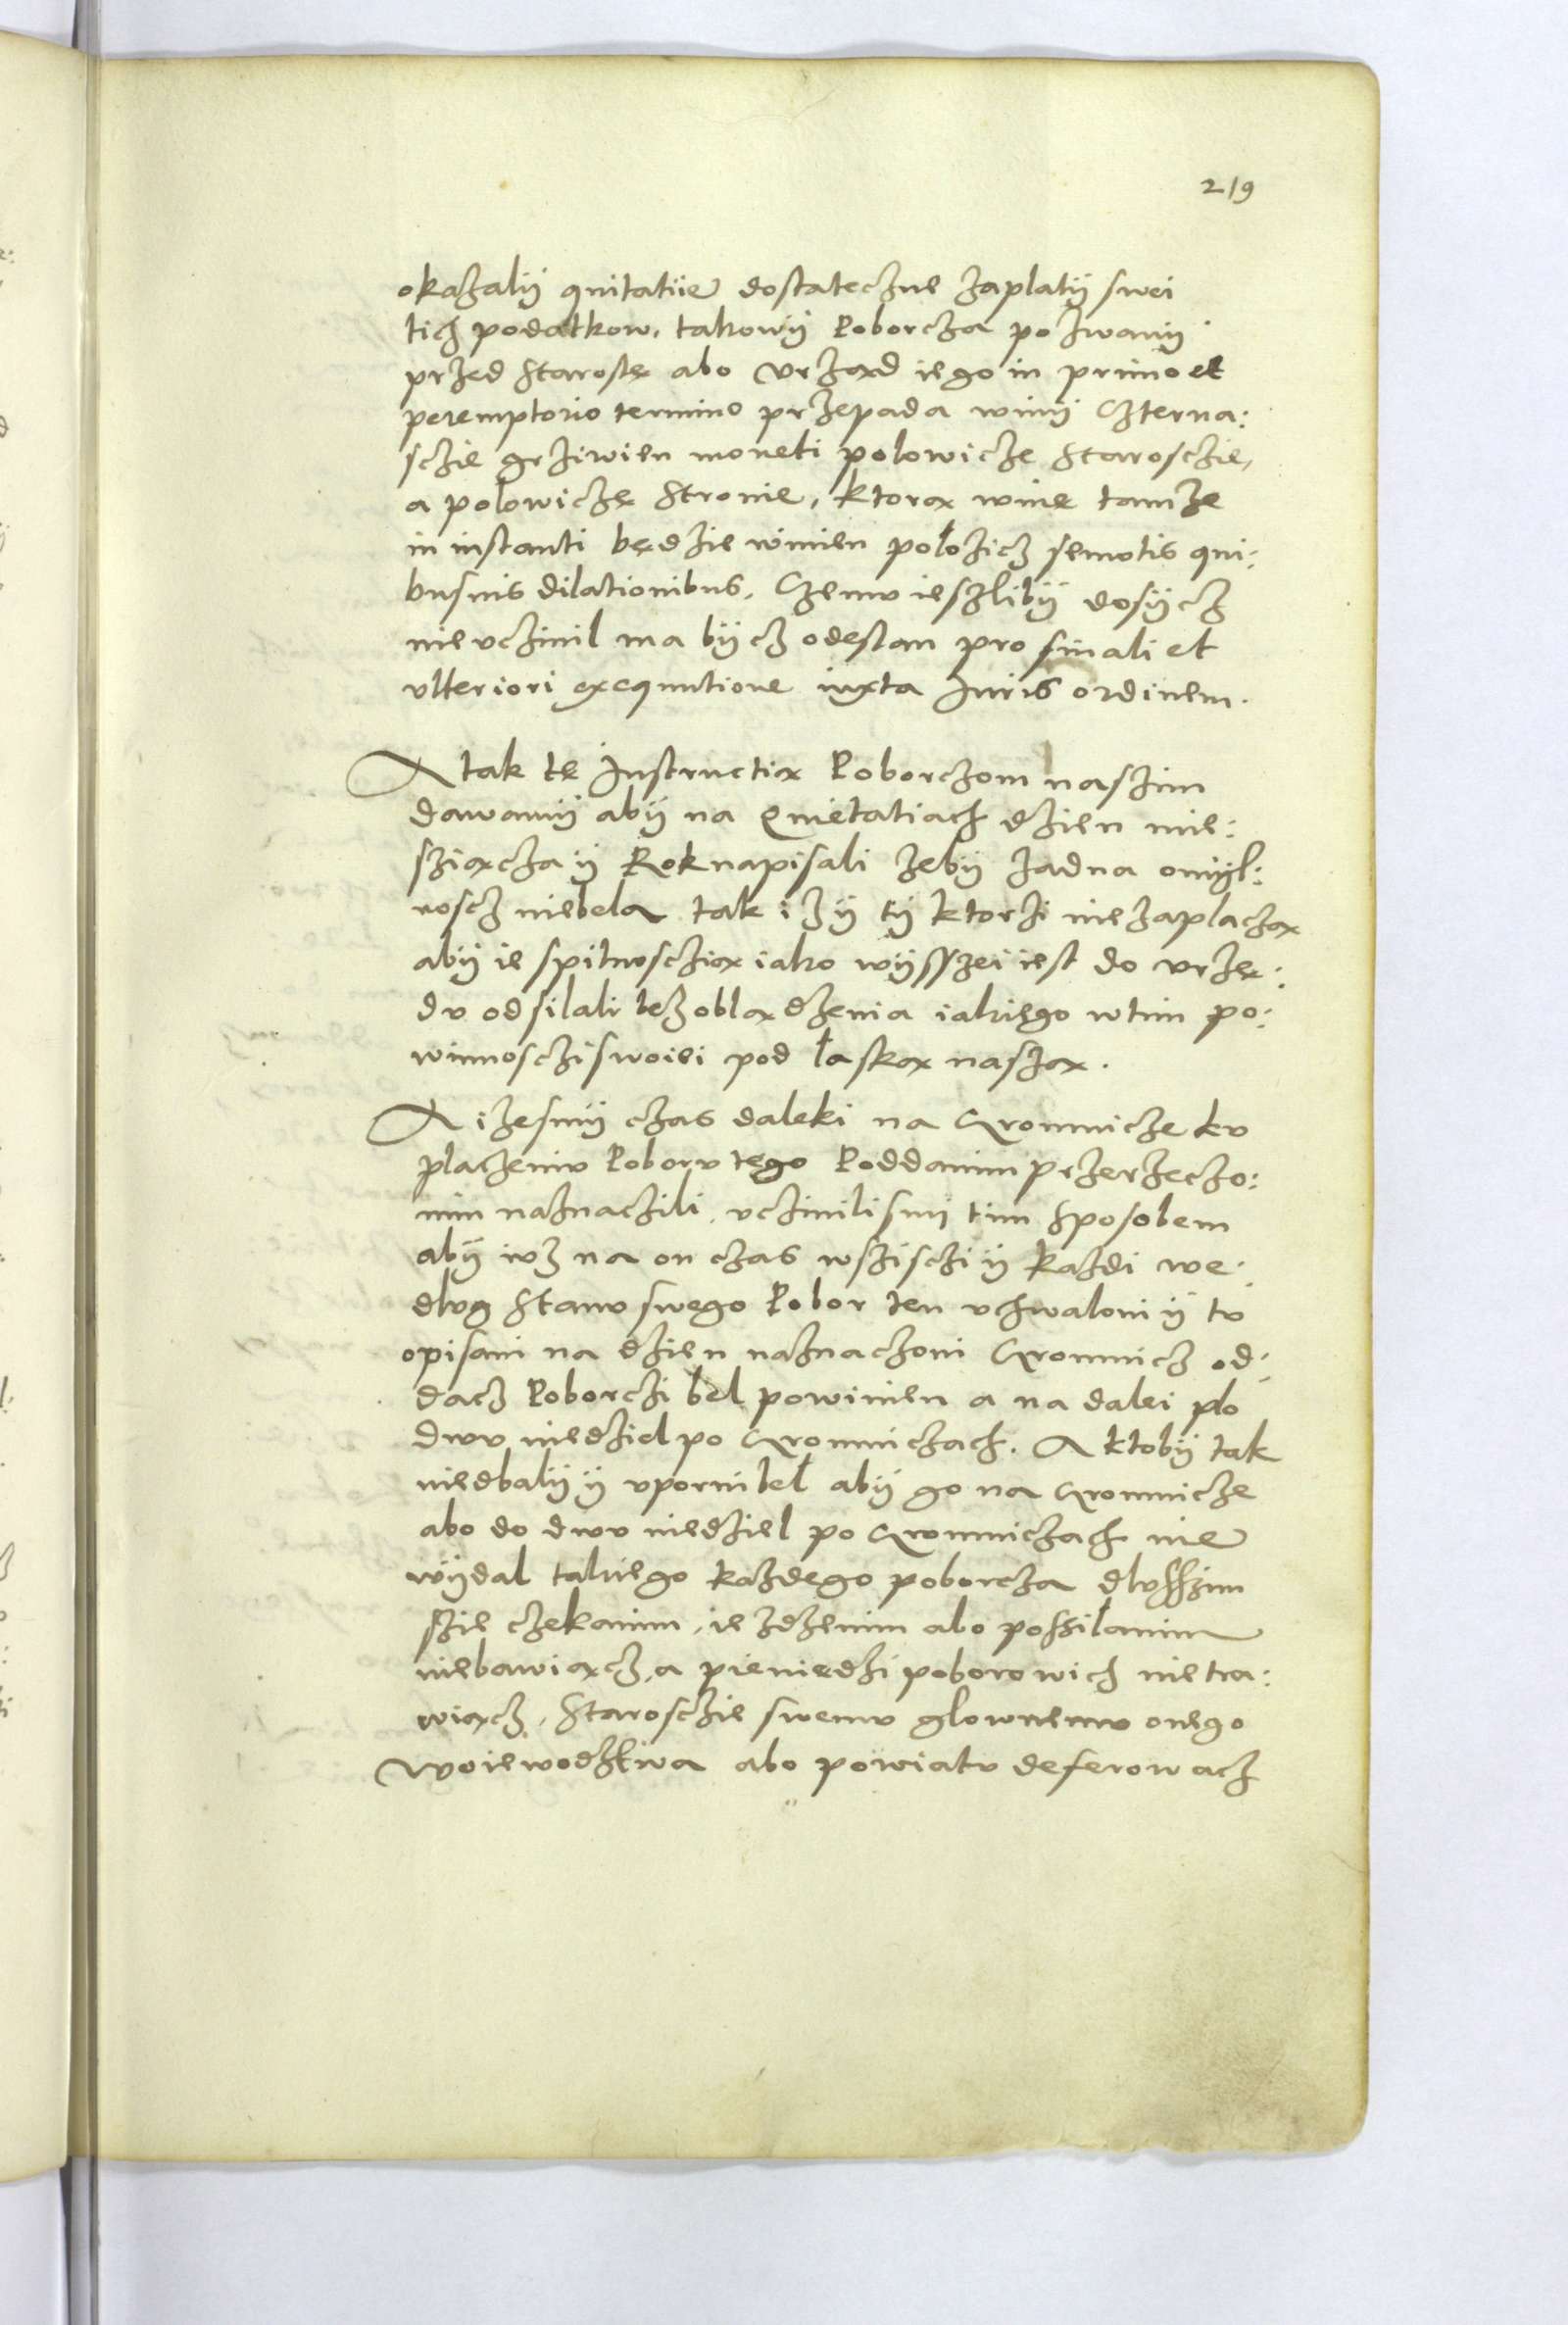 219
okazalÿ quitatiie dostateczne zaplatÿ swei
tich podatkow, takowÿ Poborcza pozwanÿ
przed Starostę abo Vrzad iego in primo et
peremptorio termino przepada winÿ Czterna:
sczie grziwien moneti polowicze Staroschie,
a polowiczę Stronie, ktora winę tamże
in instanti będzie winien położicz semotis qui:
busuis dilationibus. Czemu ieszlibÿ dosÿcz
nie vczinil ma bÿcz odesłan pro finali et
vlteriori exequutione iuxta Juris ordinem.
A tak tę Instructia Poborczom naszim
dawamÿ abÿ na Quietatiach dzien mie:
sziacza ÿ Rok napisali zebÿ żadna omÿl:
noscz niebela tak iż ÿ tÿ ktorzi nie zaplacza
abÿ ie s pilnosczia iako wÿsszei iest do vrzę:
du odsilali bez obladzenia iakiego w tim po:
winnosczi swoiei pod łaska nasza.
A iżesmÿ czas daleki na Gromnicze ku
placzeniu Poboru tego Poddanim przerzeczo:
nim naznaczili, vczinilismi tim sposobem
abÿ iuż na on czas wszisczi ÿ każdi we:
dlug Stanu swego Pobor ten vchwaloni ÿ tu
opisani na dzien naznaczoni Gromnicz od:
dacz Poborczi bel powinien a na dalei do
dwu niedziel po Gromniczach. A ktobÿ tak
niedbalÿ ÿ vporni beł abÿ go na Gromnicze
abo do dwu niedziel po Gromniczach nie
wÿdal takiego każdego poborcza dlusszim
szie czekanim, ieżdżenim abo possiłanim
niebawiacz, a pieniędzi poborowich nie tra:
wiacz, Staroschie swemu glownemu onego
Woiewodztwa abo powiatu deferowacz